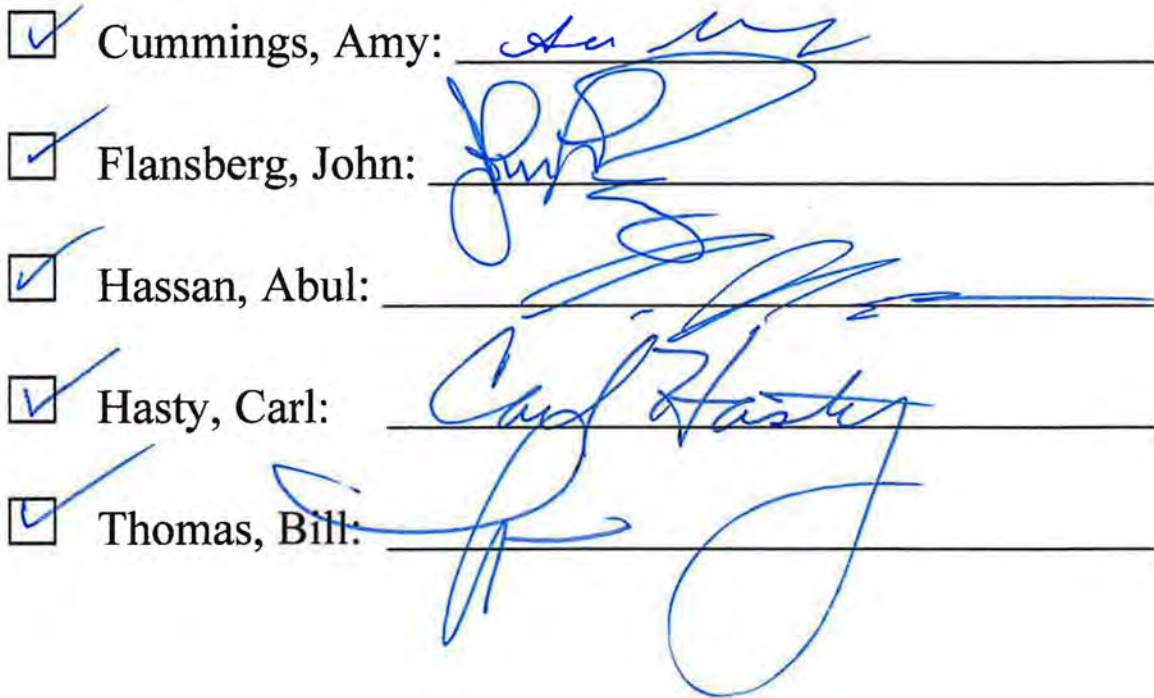 ☑ Cummings, Amy:
☑ Flansberg, John:
☑ Hassan, Abul:
☑ Hasty, Carl: Carl Hasty
☑ Thomas, Bill: